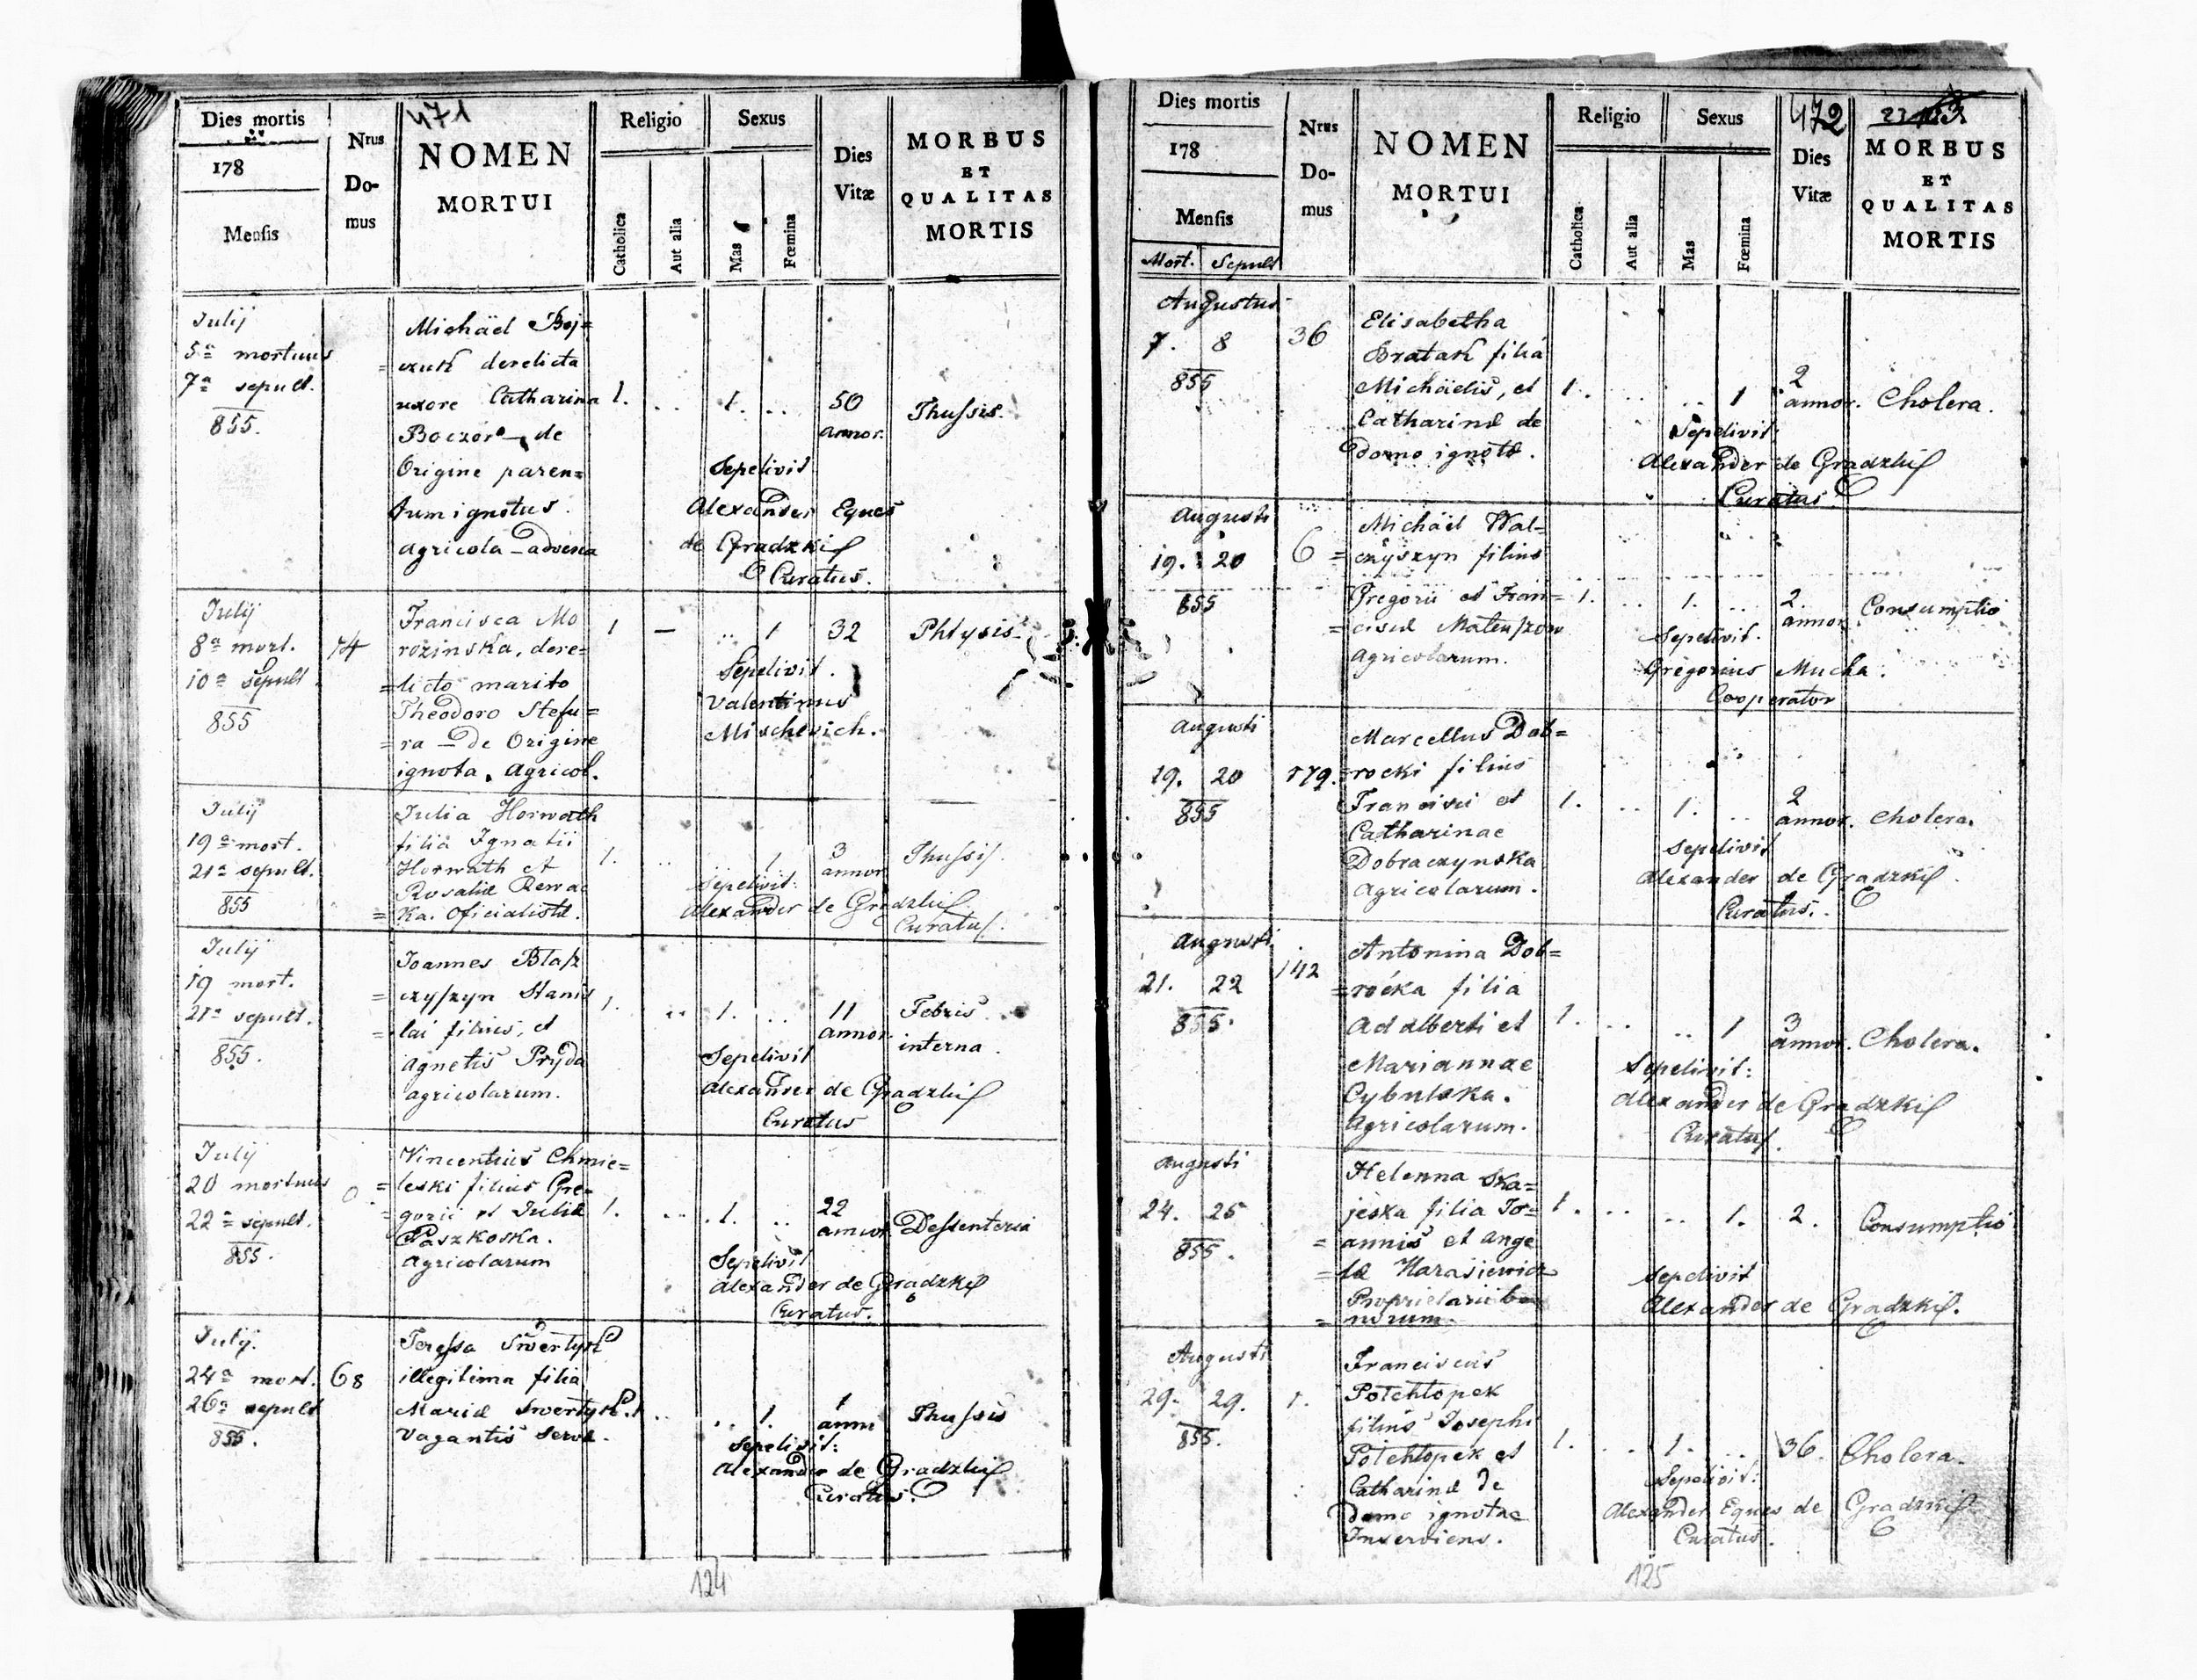 Dies mortis
178
Mensis
Nrus
Do-
mus
471
NOMEN
MORTUI
Religio
Catholica
Aut alia
Sexus
Mas
Fœmina
Dies
Vitæ
MORBUS
ET
QUALITAS
MORTIS
Julij
5a mortuus
7a sepult.
855.
Michäel Boj=
=czuk derelicta
uxore Catharina
Boczor — de
Origine paren=
tum ignotus.
agricola — advena
1. .. 1. ..
50
annor.
Thussis.
Sepelivit
Alexander Eques
de Gradzki
Curatus.
Julij
8a mort.
10a Sepult.
855
74
Francisca Mo
rozinska, dere=
=licto marito
Theodoro Stefu=
=ra — de Origine
ignota. Agricol.
1 — .. 1 32
Phtysis
Sepelivit.
Valentinus
Mischevich.
Julij
19a mort.
21a sepult.
855
Julia Horwath
filia Ignatii
Horwath et
Rosaliæ Rewac
=ka. Oficialistæ.
1. .. .. 1.
3
annor
Thussis.
Sepelivit:
Alexander de Gradzki
Curatus.
Julij
19 mort.
21a sepult.
855.
Joannes Blasz
=czyszyn Stanis
=lai filius, et
Agnetis Pryda
agricolarum.
1. .. 1. ..
11
annor.
Febris
interna.
Sepelivit
Alexander de Gradzki
Curatus
Julij
20 mortuus
22a sepult.
855.
Vincentius Chmie=
=leski filius Gre=
=gorii et Juliæ
Paszkoska.
Agricolarum
1. .. 1. ..
22
annor
Dessenteria
Sepelivit
Alexander de Gradzki
Curatus.
Julij.
24a mort.
26a sepult
855.
68
Teressa Swertys
illegitima filia
Mariæ Swertys
vagantis servæ.
1 .. .. 1.
1
anni
Thussis
Sepelivit:
Alexander de Gradzki
Curatus.
124
Dies mortis
178
Mensis
Mort. Sepult
Nrus
Do-
mus
NOMEN
MORTUI
Religio
Catholica
Aut alia
Sexus
Mas
Fœmina
472
Dies
Vitæ
MORBUS
ET
QUALITAS
MORTIS
Augustus
7. 8
855
36
Elisabetha
Bratak filia
Michäelis, et
Catharinæ de
domo ignotæ.
1. .. .. 1
2
annor.
Cholera.
Sepelivit
Alexander de Gradzki
Curatus.
Augusti
19. 20
855
6
Michäel Wal=
=czyszyn filius
Gregorii et Fran=
=ciscæ Mateuszow
Agricolarum.
1. .. 1. ..
2.
annor
Consumptio
Sepelivit.
Gregorius Mucha.
Cooperator
Augusti
19. 20
855
179.
Marcellus Dob=
=rocki filius
Francisci et
Catharinae
Dobraczynska
Agricolarum.
1. .. 1. ..
2
annor.
Cholera.
Sepelivit
Alexander de Gradzki
Curatus.
Augusti
21. 22
855.
142
Antonina Dob=
=rocka filia
Adalberti et
Mariannae
Cybulska.
Agricolarum.
1. .. .. 1
3
annor.
Cholera.
Sepelivit:
Alexander de Gradzki
Curatus.
Augusti
24. 25
855.
Helenna Ska=
jeska filia Jo=
=annis et Ange
=læ Harasiewicz
1. .. .. 1. 2.
Consumptio
Sepelivit
Alexander de Gradzki.
Augusti
29. 29.
855.
1.
Franciscus
Potehtopek
filius Josephi
Potehtopek et
Catharinæ de
Domo ignotae
Inserviens.
1. .. 1. .. 36.
Cholera.
Sepelivit:
Alexander Eques de Gradzki
Curatus.
125